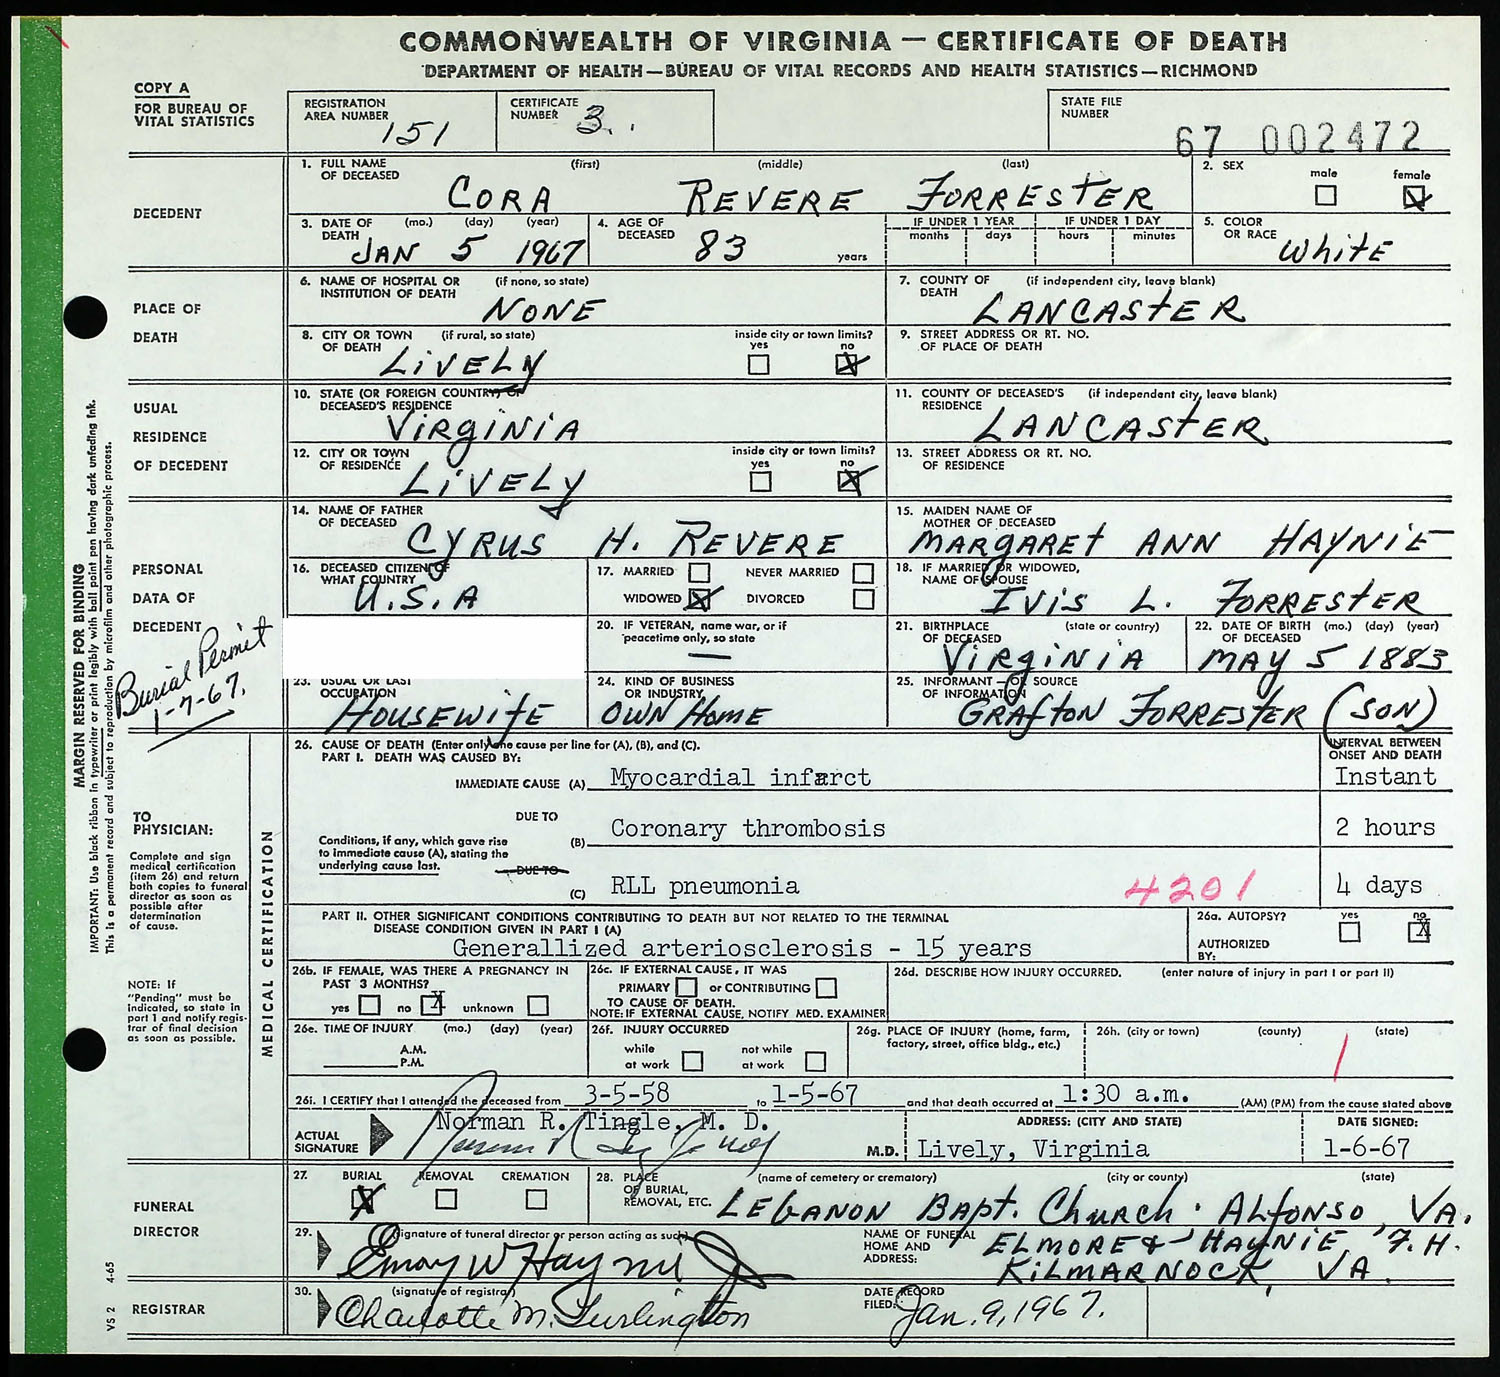 COMMONWEALTH OF VIRGINIA — CERTIFICATE OF DEATH
DEPARTMENT OF HEALTH—BUREAU OF VITAL RECORDS AND HEALTH STATISTICS—RICHMOND
COPY A
FOR BUREAU OF
VITAL STATISTICS
REGISTRATION AREA NUMBER 151
CERTIFICATE NUMBER 3
STATE FILE NUMBER 67 002472
DECEDENT
1. FULL NAME OF DECEASED (first) (middle) (last)
CORA REVERE FORRESTER
2. SEX male female X
3. DATE OF DEATH (mo.) (day) (year)
JAN 5 1967
4. AGE OF DECEASED 83 years
IF UNDER 1 YEAR months days
IF UNDER 1 DAY hours minutes
5. COLOR OR RACE White
PLACE OF
DEATH
6. NAME OF HOSPITAL OR INSTITUTION OF DEATH (if none, so state)
NONE
7. COUNTY OF DEATH (if independent city, leave blank)
LANCASTER
8. CITY OR TOWN OF DEATH (if rural, so state)
LIVELY
inside city or town limits? yes no X
9. STREET ADDRESS OR RT. NO. OF PLACE OF DEATH
USUAL
RESIDENCE
OF DECEDENT
10. STATE (OR FOREIGN COUNTRY) OF DECEASED'S RESIDENCE
VIRGINIA
11. COUNTY OF DECEASED'S RESIDENCE (if independent city, leave blank)
LANCASTER
12. CITY OR TOWN OF RESIDENCE
LIVELY
inside city or town limits? yes no X
13. STREET ADDRESS OR RT. NO. OF RESIDENCE
PERSONAL
DATA OF
DECEDENT
14. NAME OF FATHER OF DECEASED
CYRUS H. REVERE
15. MAIDEN NAME OF MOTHER OF DECEASED
MARGARET ANN HAYNIE
16. DECEASED CITIZEN OF WHAT COUNTRY
U.S.A
17. MARRIED NEVER MARRIED
WIDOWED X DIVORCED
18. IF MARRIED OR WIDOWED, NAME OF SPOUSE
IVIS L. FORRESTER
20. IF VETERAN, name war, or if peacetime only, so state
—
21. BIRTHPLACE OF DECEASED (state or country)
VIRGINIA
22. DATE OF BIRTH OF DECEASED (mo.) (day) (year)
MAY 5 1883
23. USUAL OR LAST OCCUPATION
HOUSEWIFE
24. KIND OF BUSINESS OR INDUSTRY
OWN HOME
25. INFORMANT — OR SOURCE OF INFORMATION
GRAFTON FORRESTER (SON)
Burial Permit
1-7-67.
MARGIN RESERVED FOR BINDING
IMPORTANT: Use black ribbon in typewriter or print legibly with ball point pen having dark unfading ink.
This is a permanent record and subject to reproduction by microfilm and other photographic process.
TO
PHYSICIAN:
Complete and sign
medical certification
(item 26) and return
both copies to funeral
director as soon as
possible after
determination
of cause.
NOTE: If
"Pending" must be
indicated, so state in
part I and notify regis-
trar of final decision
as soon as possible.
MEDICAL CERTIFICATION
26. CAUSE OF DEATH (Enter only one cause per line for (A), (B), and (C).
PART I. DEATH WAS CAUSED BY:
INTERVAL BETWEEN ONSET AND DEATH
IMMEDIATE CAUSE (A) Myocardial infarct Instant
DUE TO
(B) Coronary thrombosis 2 hours
Conditions, if any, which gave rise
to immediate cause (A), stating the
underlying cause last.
DUE TO
(C) RLL pneumonia 4201 4 days
PART II. OTHER SIGNIFICANT CONDITIONS CONTRIBUTING TO DEATH BUT NOT RELATED TO THE TERMINAL
DISEASE CONDITION GIVEN IN PART I (A)
Generallized arteriosclerosis - 15 years
26a. AUTOPSY? yes no X
AUTHORIZED BY:
26b. IF FEMALE, WAS THERE A PREGNANCY IN PAST 3 MONTHS?
yes no X unknown
26c. IF EXTERNAL CAUSE, IT WAS
PRIMARY or CONTRIBUTING
TO CAUSE OF DEATH.
NOTE: IF EXTERNAL CAUSE, NOTIFY MED. EXAMINER
26d. DESCRIBE HOW INJURY OCCURRED. (enter nature of injury in part I or part II)
26e. TIME OF INJURY (mo.) (day) (year)
A.M.
P.M.
26f. INJURY OCCURRED
while at work not while at work
26g. PLACE OF INJURY (home, farm, factory, street, office bldg., etc.)
26h. (city or town) (county) (state)
26i. I CERTIFY that I attended the deceased from 3-5-58 to 1-5-67 and that death occurred at 1:30 a.m. (AM) (PM) from the cause stated above
ACTUAL SIGNATURE
Norman R. Tingle, M. D.
M.D.
ADDRESS: (CITY AND STATE)
Lively, Virginia
DATE SIGNED:
1-6-67
FUNERAL
DIRECTOR
27. BURIAL X REMOVAL CREMATION
28. PLACE OF BURIAL, REMOVAL, ETC. (name of cemetery or crematory) (city or county) (state)
LEBANON BAPT. CHURCH . ALFONSO, VA.
29. (signature of funeral director or person acting as such)
Emory W Haynie Jr
NAME OF FUNERAL HOME AND ADDRESS:
ELMORE & HAYNIE F.H.
KILMARNOCK, VA.
REGISTRAR
30. (signature of registrar)
Charlotte M. Turlington
DATE RECORD FILED:
Jan. 9, 1967.
VS 2 4-65